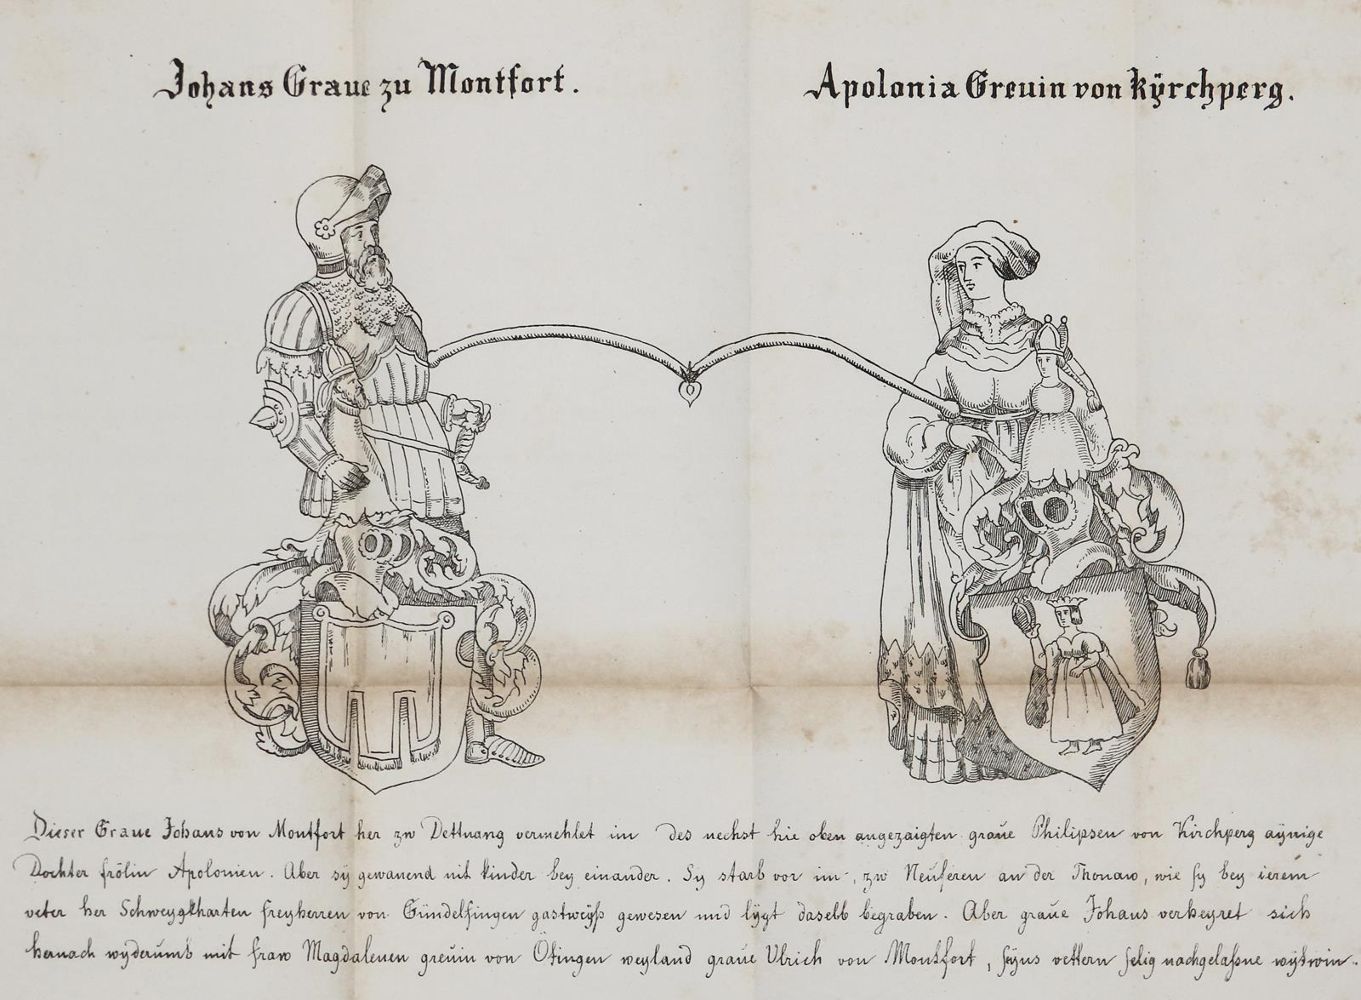 Johans Graue zu Montfort.
Apolonia Greuin von Kÿrchperg.
Dieser Graue Johans von Montfort her zw Dettnang vermehlet im des nechst hie oben angezaigten graüe Philipsen von Kirchperg aÿnige
Dochter frölin Apolonien. Aber sÿ gewanend nit kinder bey einander. Sy starb vor im, zw Neüferen an der Thonaw, wie sy bey ierem
veter her Schweygkharten freyherren von Gündelfingen gastweÿß gewesen und lÿgt daselb begraben. Aber graüe Johans verheyret sich
hernach wÿderümb mit fraw Magdalenen greuin von Ötingen weyland graüe Ulrich von Montfort, seÿns vettern selig nachgelaßne wÿtwin.